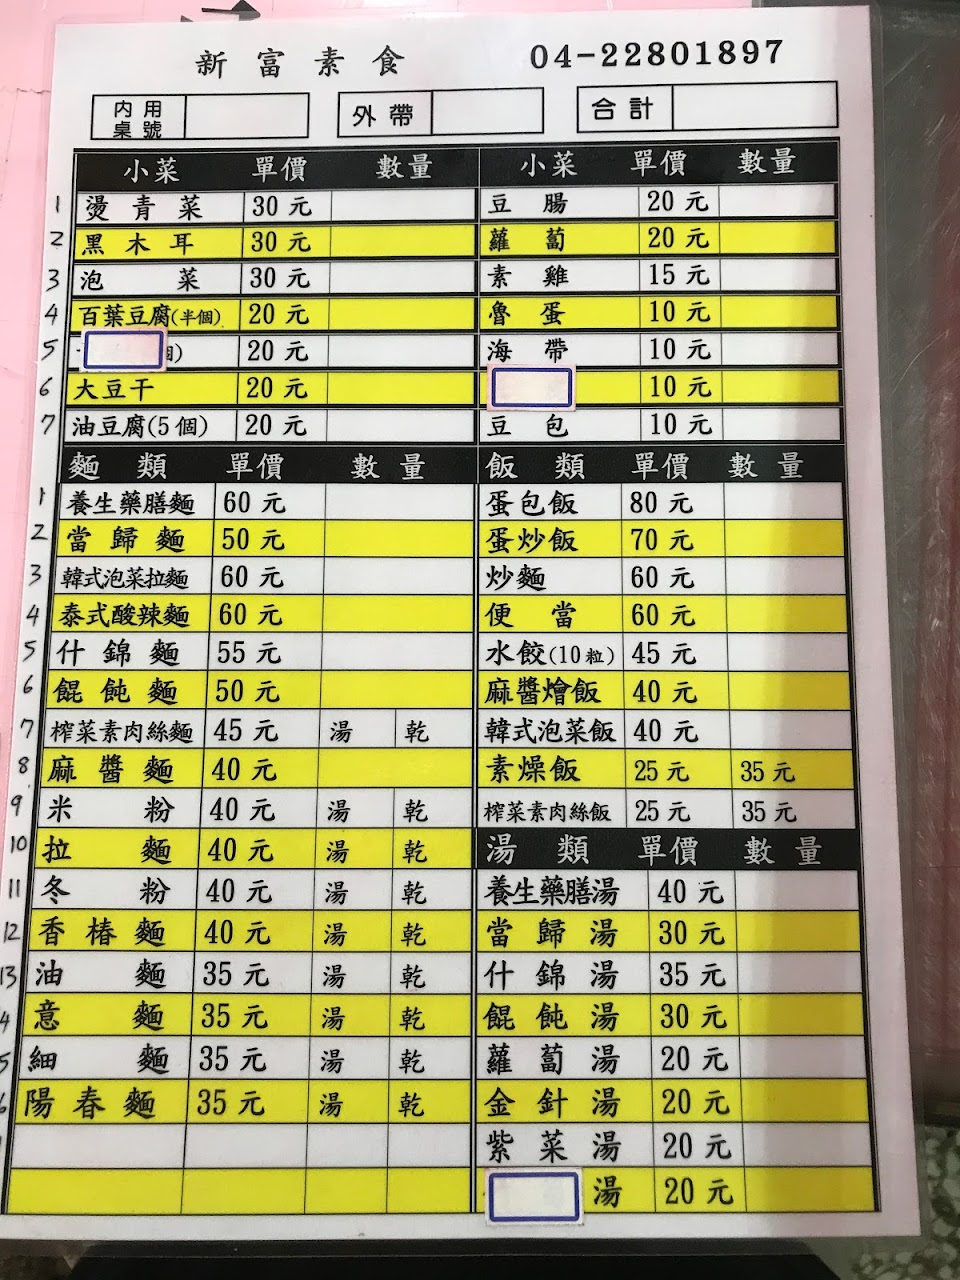 新富素食 04-22801897
內用桌號 外帶 合計
小菜 單價 數量 小菜 單價 數量
1 燙青菜 30元 豆腸 20元
2 黑木耳 30元 蘿蔔 20元
3 泡菜 30元 素雞 15元
4 百葉豆腐(半個) 20元 魯蛋 10元
5 20元 海帶 10元
6 大豆干 20元 10元
7 油豆腐(5個) 20元 豆包 10元
麵類 單價 數量 飯類 單價 數量
1 養生藥膳麵 60元 蛋包飯 80元
2 當歸麵 50元 蛋炒飯 70元
3 韓式泡菜拉麵 60元 炒麵 60元
4 泰式酸辣麵 60元 便當 60元
5 什錦麵 55元 水餃(10粒) 45元
6 餛飩麵 50元 麻醬燴飯 40元
7 榨菜素肉絲麵 45元 湯 乾 韓式泡菜飯 40元
8 麻醬麵 40元 素燥飯 25元 35元
9 米粉 40元 湯 乾 榨菜素肉絲飯 25元 35元
10 拉麵 40元 湯 乾 湯類 單價 數量
11 冬粉 40元 湯 乾 養生藥膳湯 40元
12 香椿麵 40元 湯 乾 當歸湯 30元
13 油麵 35元 湯 乾 什錦湯 35元
4 意麵 35元 湯 乾 餛飩湯 30元
5 細麵 35元 湯 乾 蘿蔔湯 20元
6 陽春麵 35元 湯 乾 金針湯 20元
紫菜湯 20元
湯 20元